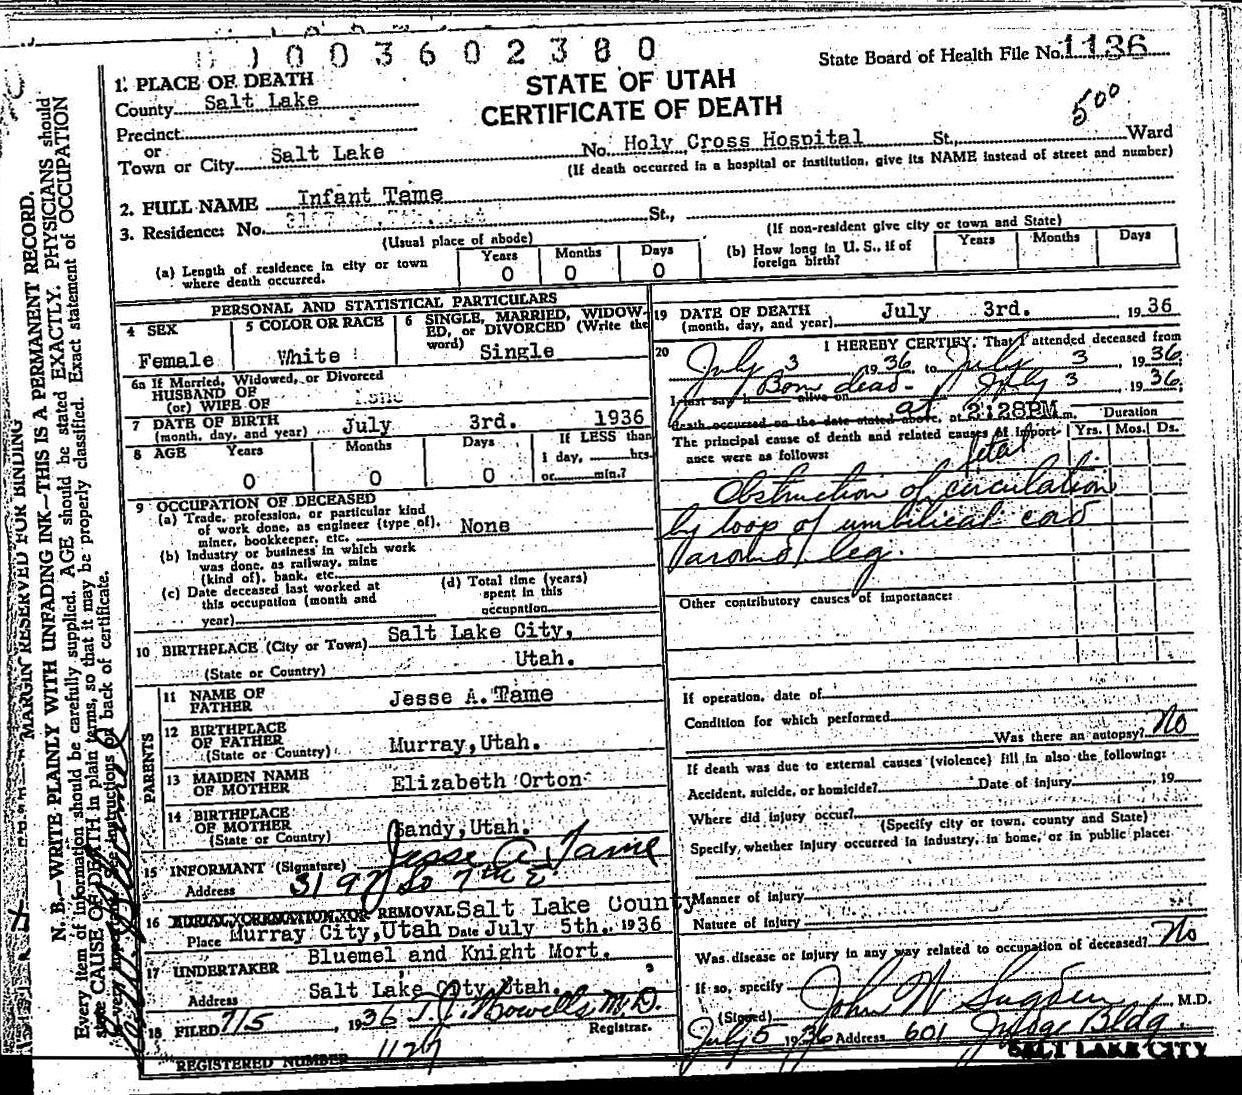 1003602380
State Board of Health File No. 1136
STATE OF UTAH
CERTIFICATE OF DEATH
500
1. PLACE OF DEATH
County Salt Lake
Precinct
or
Town or City Salt Lake No. Holy Cross Hospital St., Ward
(If death occurred in a hospital or institution, give its NAME instead of street and number)
2. FULL NAME Infant Tame
3. Residence: No. St.,
(Usual place of abode) (If non-resident give city or town and State)
(a) Length of residence in city or town where death occurred. Years 0 Months 0 Days 0
(b) How long in U. S., if of foreign birth? Years Months Days
PERSONAL AND STATISTICAL PARTICULARS
4 SEX Female
5 COLOR OR RACE White
6 SINGLE, MARRIED, WIDOWED, or DIVORCED (Write the word) Single
6a If Married, Widowed, or Divorced
HUSBAND OF
(or) WIFE OF
7 DATE OF BIRTH
(month, day, and year) July 3rd. 1936
8 AGE Years 0 Months 0 Days 0
If LESS than
1 day, hrs.
or min.?
9 OCCUPATION OF DECEASED
(a) Trade, profession, or particular kind
of work done, as engineer (type of),
miner, bookkeeper, etc. None
(b) Industry or business in which work
was done, as railway, mine
(kind of), bank, etc.
(c) Date deceased last worked at
this occupation (month and
year)
(d) Total time (years)
spent in this
occupation
10 BIRTHPLACE (City or Town) Salt Lake City,
(State or Country) Utah.
PARENTS
11 NAME OF
FATHER Jesse A. Tame
12 BIRTHPLACE
OF FATHER
(State or Country) Murray, Utah.
13 MAIDEN NAME
OF MOTHER Elizabeth Orton
14 BIRTHPLACE
OF MOTHER
(State or Country) Sandy, Utah.
15 INFORMANT (Signature) Jesse A. Tame
Address 3197 So 7th E
16 BURIAL, CREMATION, OR REMOVAL Salt Lake County
Place Murray City, Utah Date July 5th. 1936
17 UNDERTAKER Bluemel and Knight Mort.
Address Salt Lake City Utah.
18 FILED 7/5, 1936 T. J. Howells, M.D.
Registrar.
REGISTERED NUMBER 1127
19 DATE OF DEATH
(month, day, and year) July 3rd. 1936
20 I HEREBY CERTIFY, That I attended deceased from
July 3 1936, to July 3, 1936
I last saw h alive on Born dead - July 3, 1936;
death occurred on the date stated above, at at 2:28PM m.
Duration
The principal cause of death and related causes of importance were as follows: Yrs. Mos. Ds.
fetal
Obstruction of circulation
by loop of umbilical cord
around leg.
Other contributory causes of importance:
If operation, date of
Condition for which performed
Was there an autopsy? No
If death was due to external causes (violence) fill in also the following:
Accident, suicide, or homicide? Date of injury, 19
Where did injury occur?
(Specify city or town, county and State)
Specify, whether injury occurred in industry, in home, or in public place:
Manner of injury
Nature of injury
Was disease or injury in any way related to occupation of deceased? No
If so, specify
(Signed) John W Sugden, M.D.
July 5 1936 Address 601 Judge Bldg.
SALT LAKE CITY
MARGIN RESERVED FOR BINDING
N. B.—WRITE PLAINLY WITH UNFADING INK—THIS IS A PERMANENT RECORD.
Every item of information should be carefully supplied. AGE should be stated EXACTLY. PHYSICIANS should
state CAUSE OF DEATH in plain terms, so that it may be properly classified. Exact statement of OCCUPATION
is very important. See instructions on back of certificate.